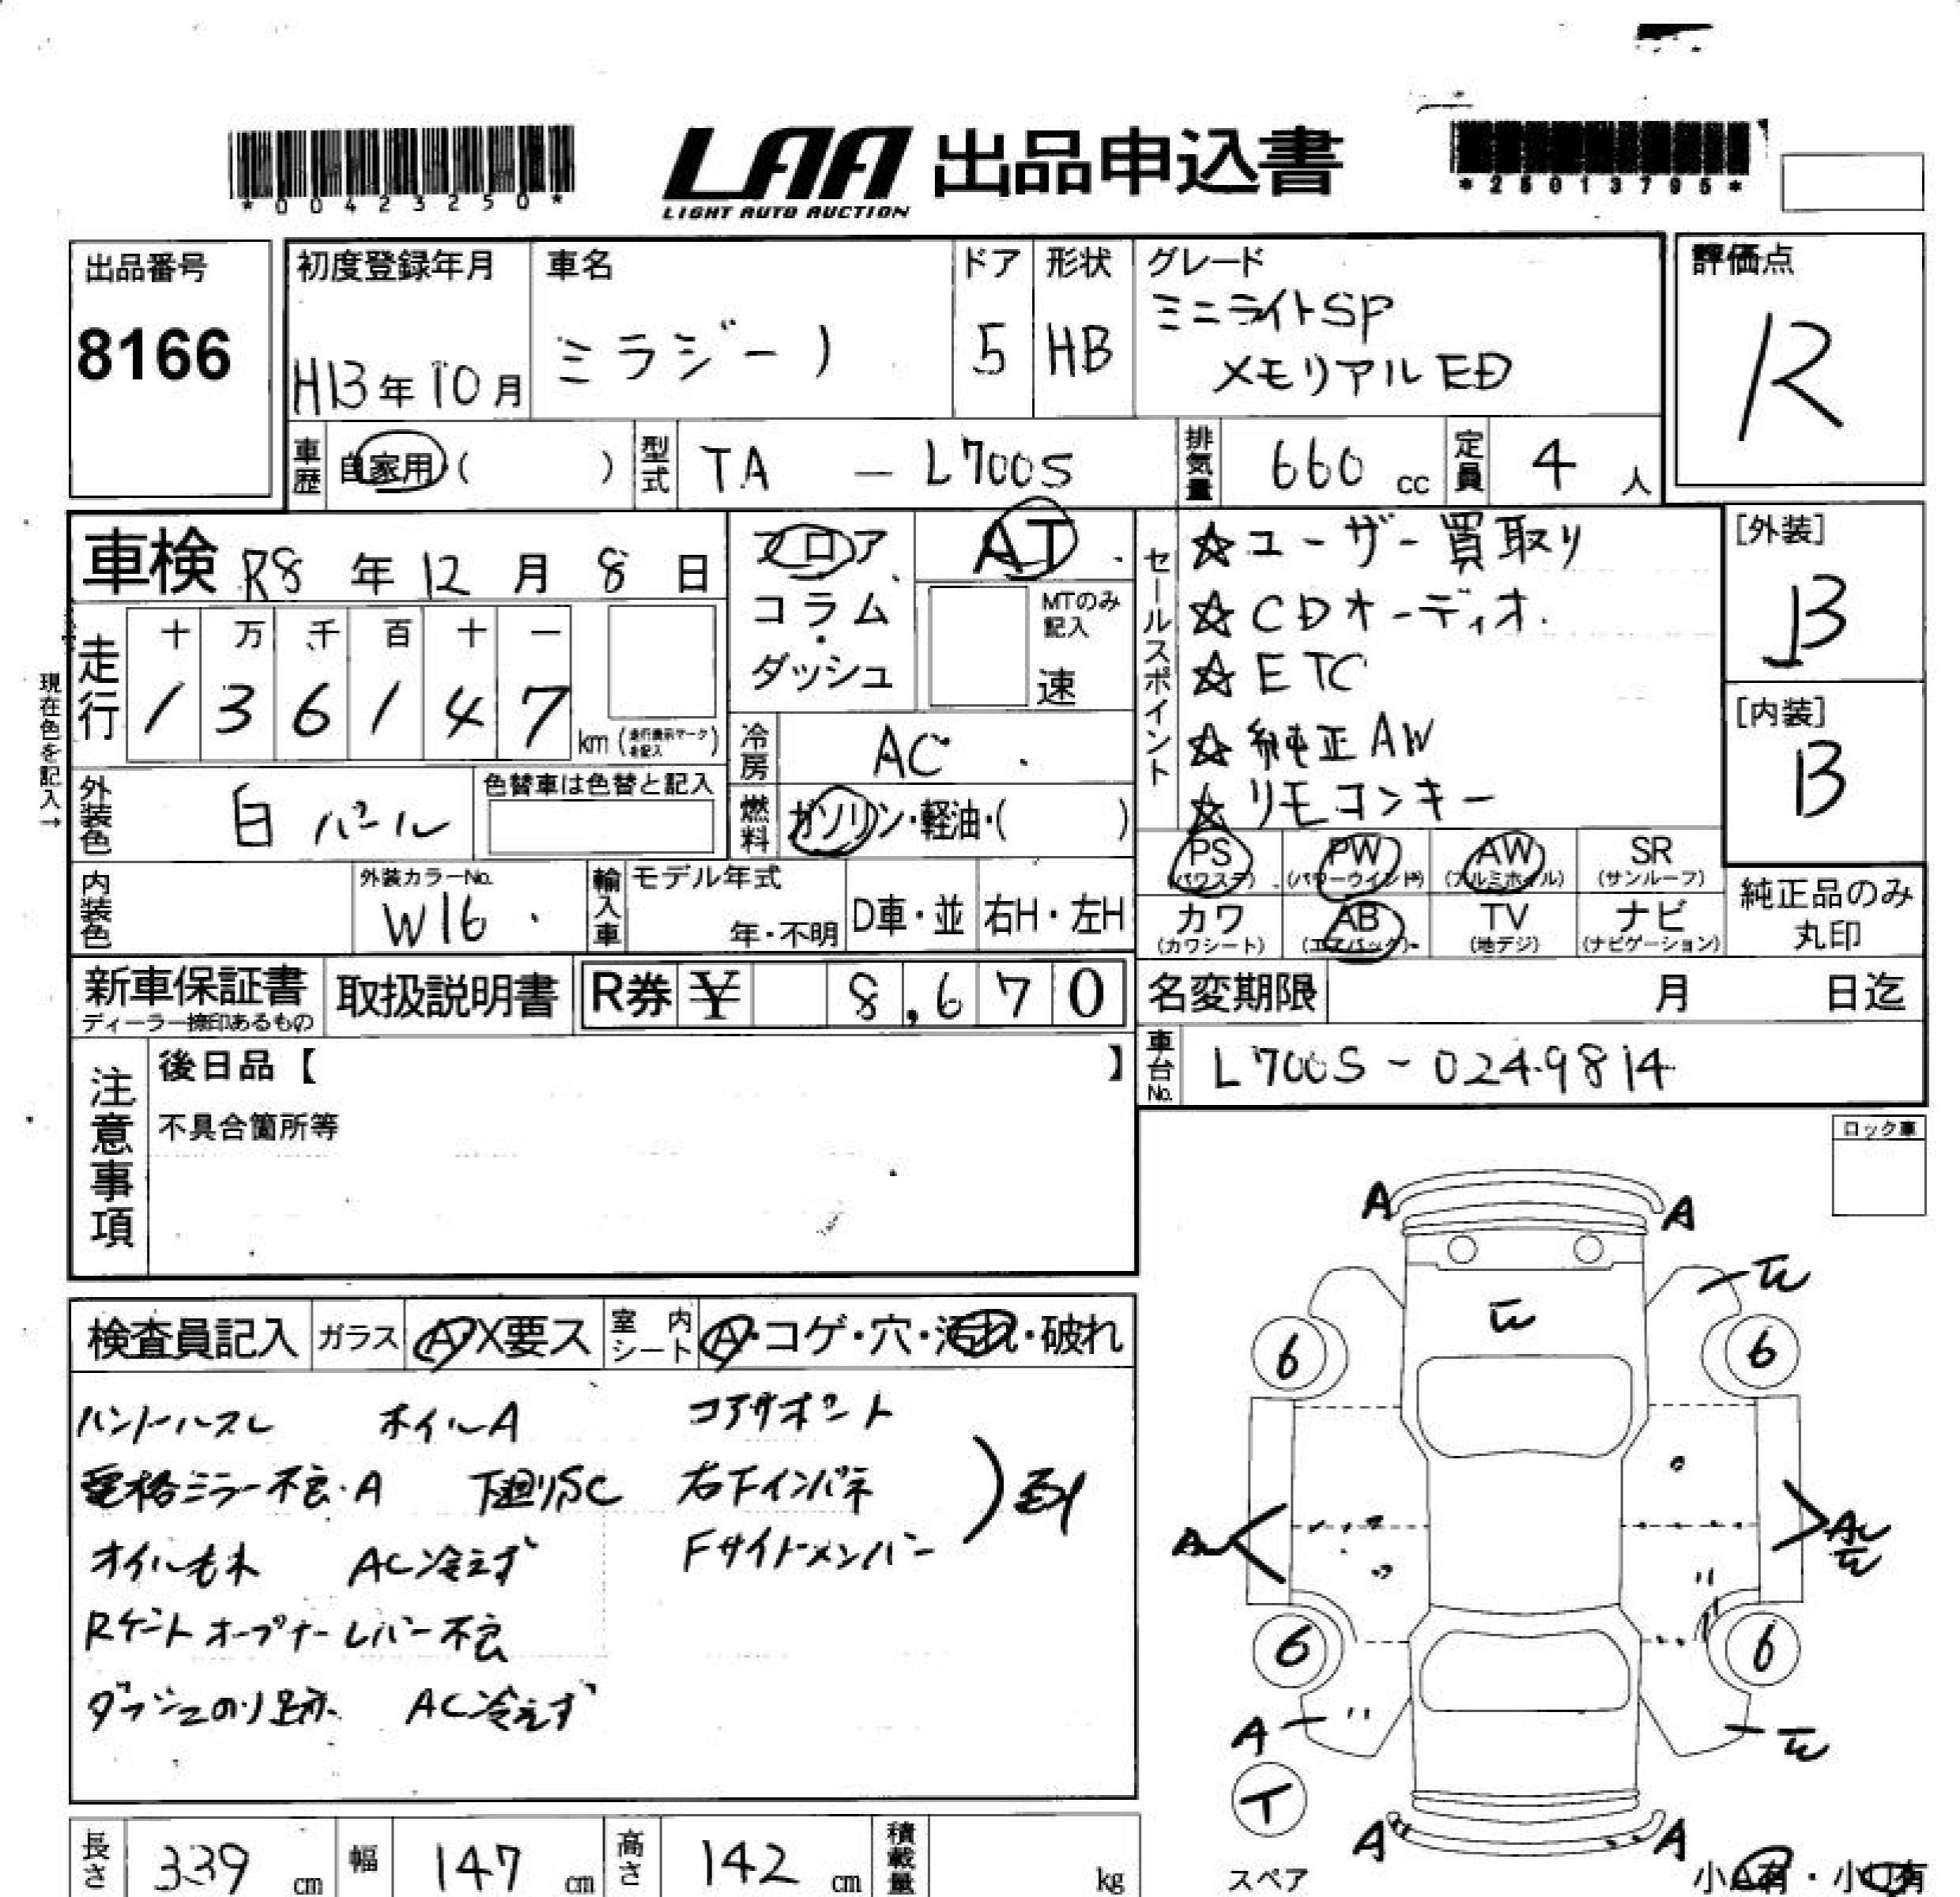 *00423250*
LAA 出品申込書
LIGHT AUTO AUCTION
*25013795*
出品番号
8166
初度登録年月
H13年10月
車名
ミラジーノ
ドア
5
形状
HB
グレード
ミニライトSP
メモリアルED
評価点
R
車歴
自家用( )
型式
TA - L700S
排気量
660 cc
定員
4 人
車検 R8年12月8日
フロア
コラム
・
ダッシュ
AT
MTのみ
記入
速
セールスポイント
☆ユーザー買取り
☆CDオーディオ.
☆ETC
☆純正AW
☆リモコンキー
[外装]
B
[内装]
B
現在色を記入→
走行
十 万 千 百 十 一
1 3 6 1 4 7
km(走行表示マークを記入)
冷房
AC
外装色
白パール
色替車は色替と記入
燃料
ガソリン・軽油・( )
内装色
外装カラーNo.
W16
輸入車
モデル年式
年・不明
D車・並
右H・左H
PS
(パワステ)
PW
(パワーウインド)
AW
(アルミホイル)
SR
(サンルーフ)
カワ
(カワシート)
AB
(エアバック)
TV
(地デジ)
ナビ
(ナビゲーション)
純正品のみ
丸印
新車保証書
ディーラー捺印あるもの
取扱説明書
R券 ¥ 8,670
名変期限 月 日迄
車台No.
L700S-0249814
注意事項
後日品【 】
不具合箇所等
ロック車
検査員記入
ガラス
A・X要ス
室内シート
A・コゲ・穴・汚れ・破れ
ハンドルスレ ホイルA コアサポート
電格ミラー不良・A 下廻りSC 右Fインパネ
オイルモレ AC冷えず Fサイドメンバー
Rゲートオープナーレバー不良
ダッシュのり跡 AC冷えず
A A
6 6
6 6
A
A
T
A A
スペア
小A有・小U有
長さ
339 cm
幅
147 cm
高さ
142 cm
積載量
kg